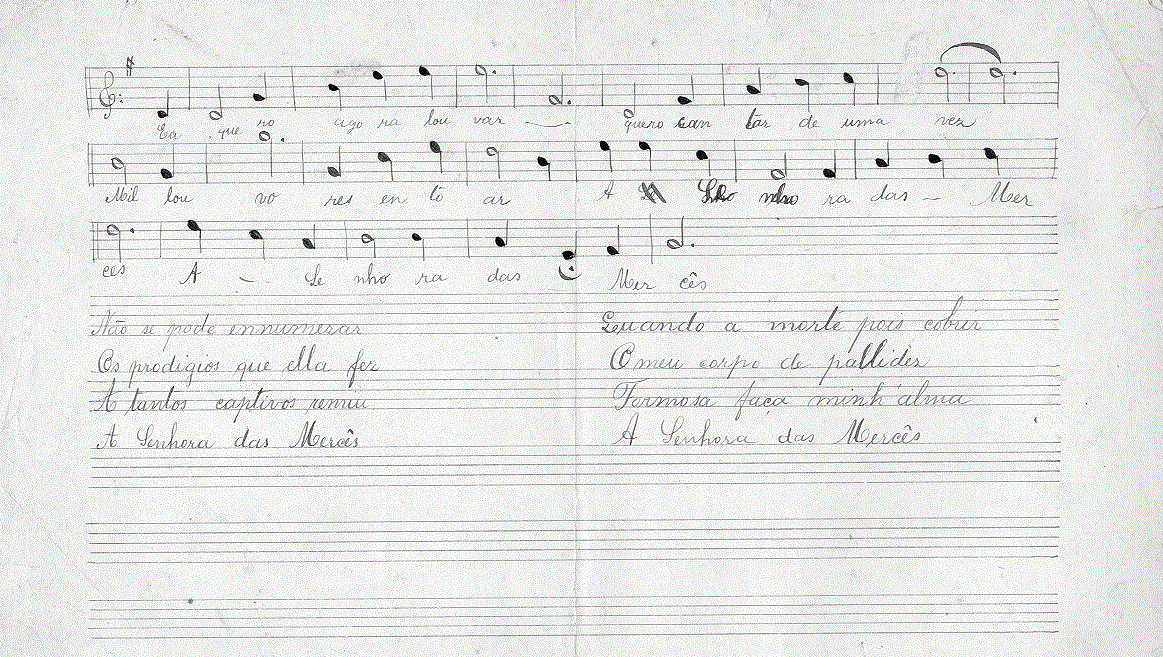 Eu que ro ago ra lou var quero can tar de uma vez
Mil lou vo res en to ar A Senho ra das Mer
ces A Se nho ra das Mer cês
Não se pode ennumerar
Os prodigios que ella fez
A tantos captivos remiu
A Senhora das Mercês
Quando a morte pois cobrir
O meu corpo de pallidez
Formosa faça minh'alma
A Senhora das Mercês